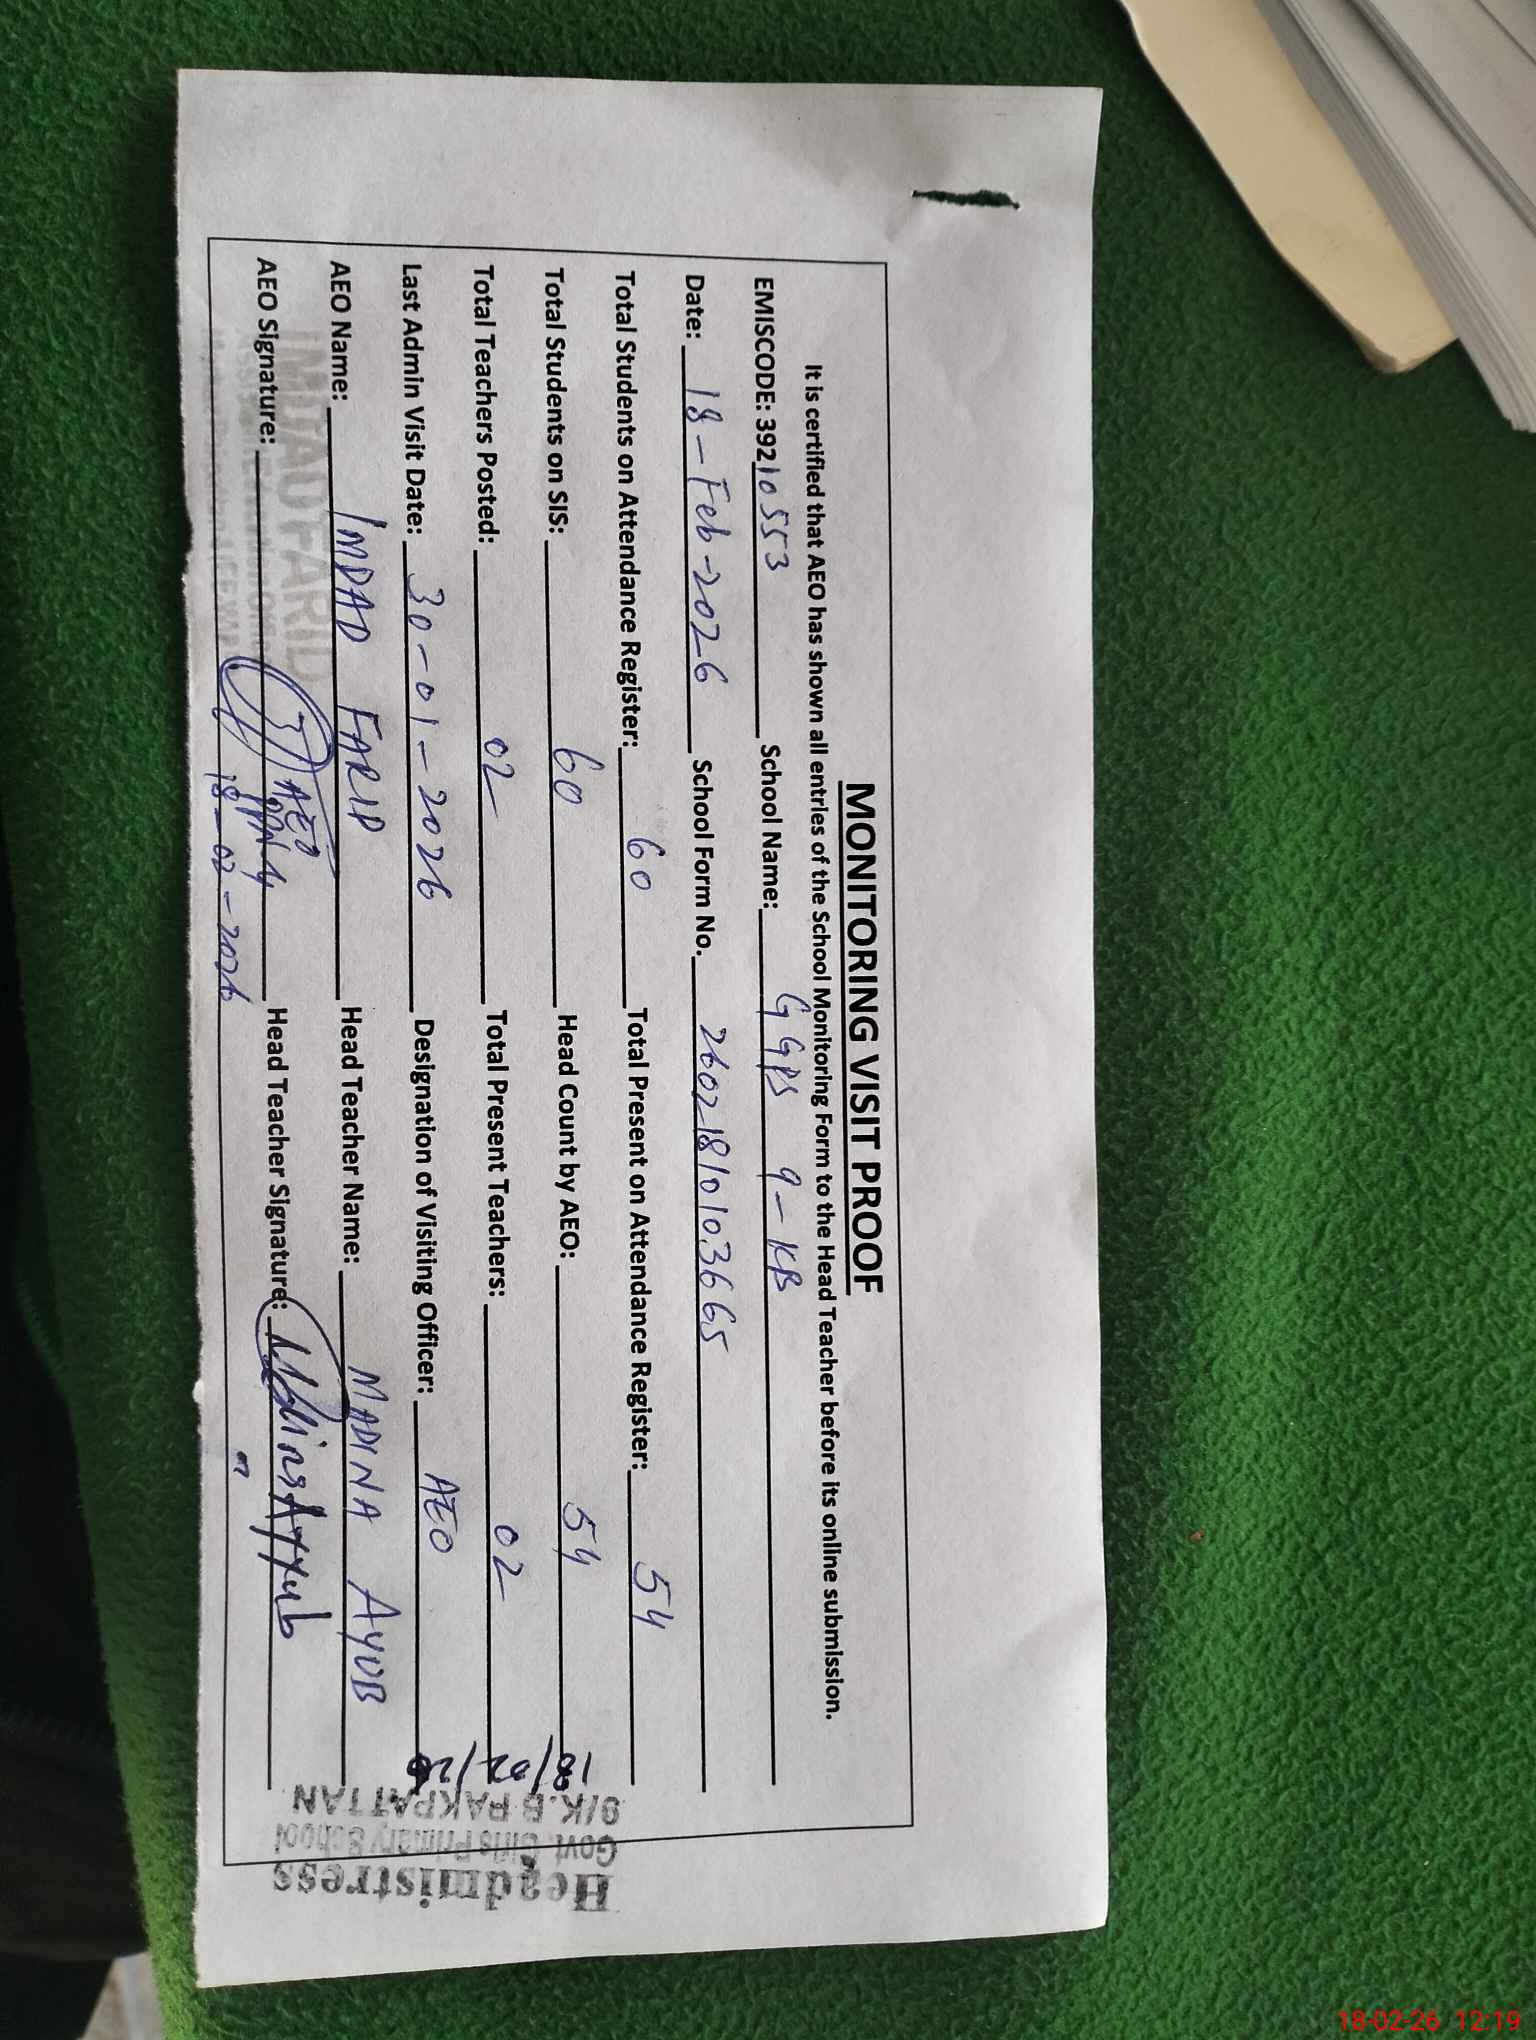 MONITORING VISIT PROOF
It is certified that AEO has shown all entries of the School Monitoring Form to the Head Teacher before its online submission.
EMISCODE: 39210553 School Name: GGPS 9-KB
Date: 18-Feb-2026 School Form No. 260218101036 65
Total Students on Attendance Register: 60 Total Present on Attendance Register: 54
Total Students on SIS: 60 Head Count by AEO: 54
Total Teachers Posted: 02 Total Present Teachers: 02
Last Admin Visit Date: 30-01-2026 Designation of Visiting Officer: AEO
AEO Name: IMDAD FARID Head Teacher Name: MADINA AYUB
AEO Signature: AEO Head Teacher Signature: Ayyub
18-02-2026
18/02/26
Headmistress
Govt. Girls Primary School
9/K.B PAKPATTAN
IMDAD FARID
18-02-26 12:19